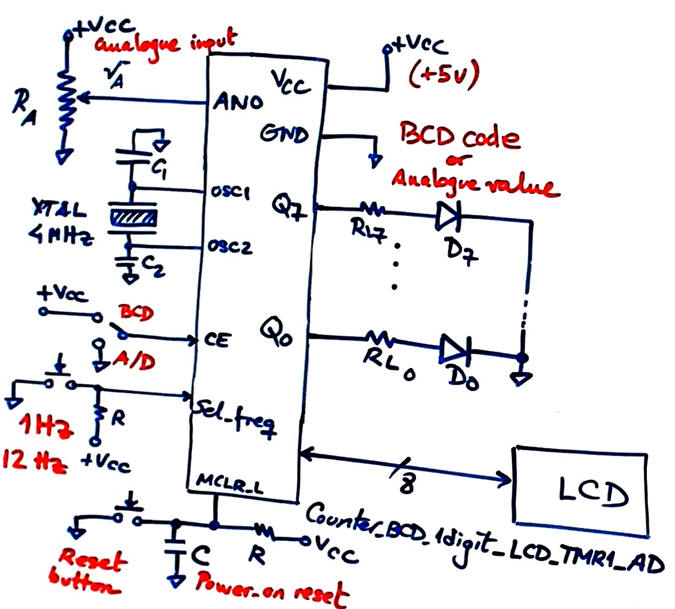 +Vcc
analogue input
RA
VA
ANO
Vcc
+Vcc
(+5v)
GND
BCD code
or
Analogue value
C1
OSC1
XTAL
4MHz
OSC2
C2
Q7
RL7
D7
+Vcc
BCD
CE
A/D
Q0
RL0
D0
Sel_freq
R
1Hz
12 Hz
+Vcc
8
LCD
MCLR_L
Counter_BCD_1digit_LCD_TMR1_AD
C
R
Vcc
Reset
button
Power_on reset